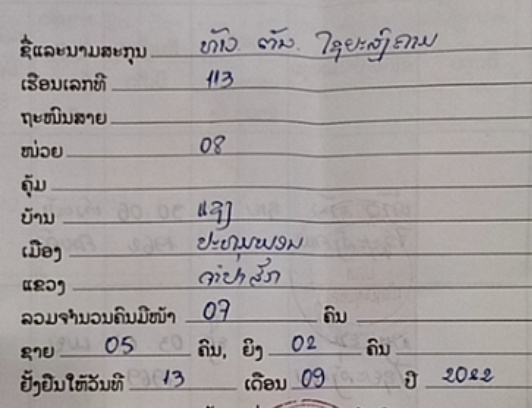 ຊື່ແລະນາມສະກຸນ ທ້າວ ຕັນ ໄຊຍະສົງຄາມ
ເຮືອນເລກທີ 113
ຖະໜົນສາຍ
ໜ່ວຍ 08
ຄຸ້ມ
ບ້ານ
ເມືອງ ປະທຸມພອນ
ແຂວງ ຈຳປາສັກ
ລວມຈຳນວນຄົນມີໜ້າ 07 ຄົນ
ຊາຍ 05 ຄົນ, ຍິງ 02 ຄົນ
ຢັ້ງຢືນໃຫ້ວັນທີ 13 ເດືອນ 09 ປີ 2022